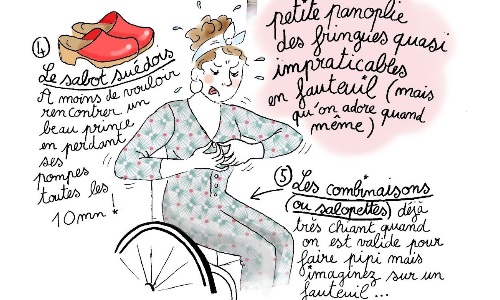 petite panoplie
des fringues quasi
impraticables
en fauteuil (mais
qu'on adore quand
même)
4
Le sabot suédois
A moins de vouloir
rencontrer un
beau prince
en perdant
ses
pompes
toutes les
10mn !
5 Les combinaisons
(ou salopettes) déjà
très chiant quand
on est valide pour
faire pipi mais
imaginez sur un
fauteuil...